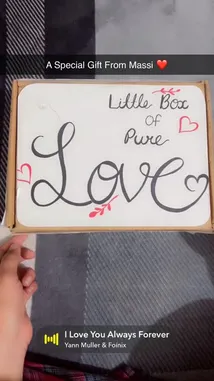 A Special Gift From Massi ❤️
Little Box
OF
Pure
Love
I Love You Always Forever
Yann Muller & Foinix